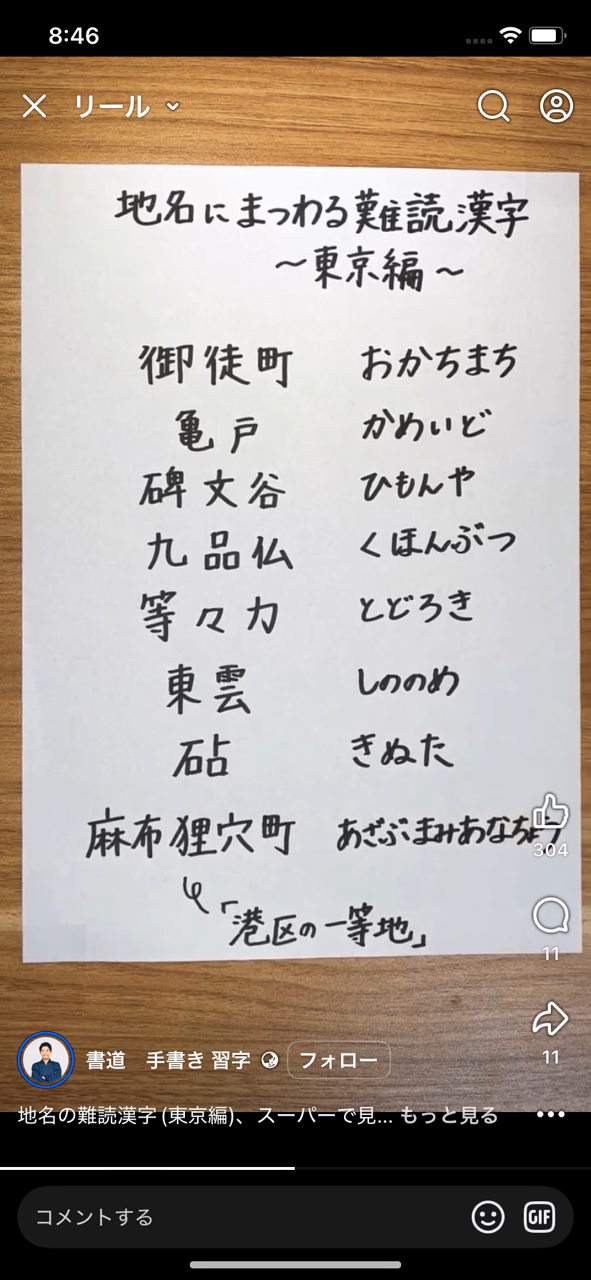 8:46
リール
地名にまつわる難読漢字
～東京編～
御徒町 おかちまち
亀戸 かめいど
碑文谷 ひもんや
九品仏 くほんぶつ
等々力 とどろき
東雲 しののめ
砧 きぬた
麻布狸穴町 あざぶまみあなちょう
「港区の一等地」
304
11
11
書道 手書き 習字 フォロー
地名の難読漢字(東京編)、スーパーで見... もっと見る
コメントする
GIF